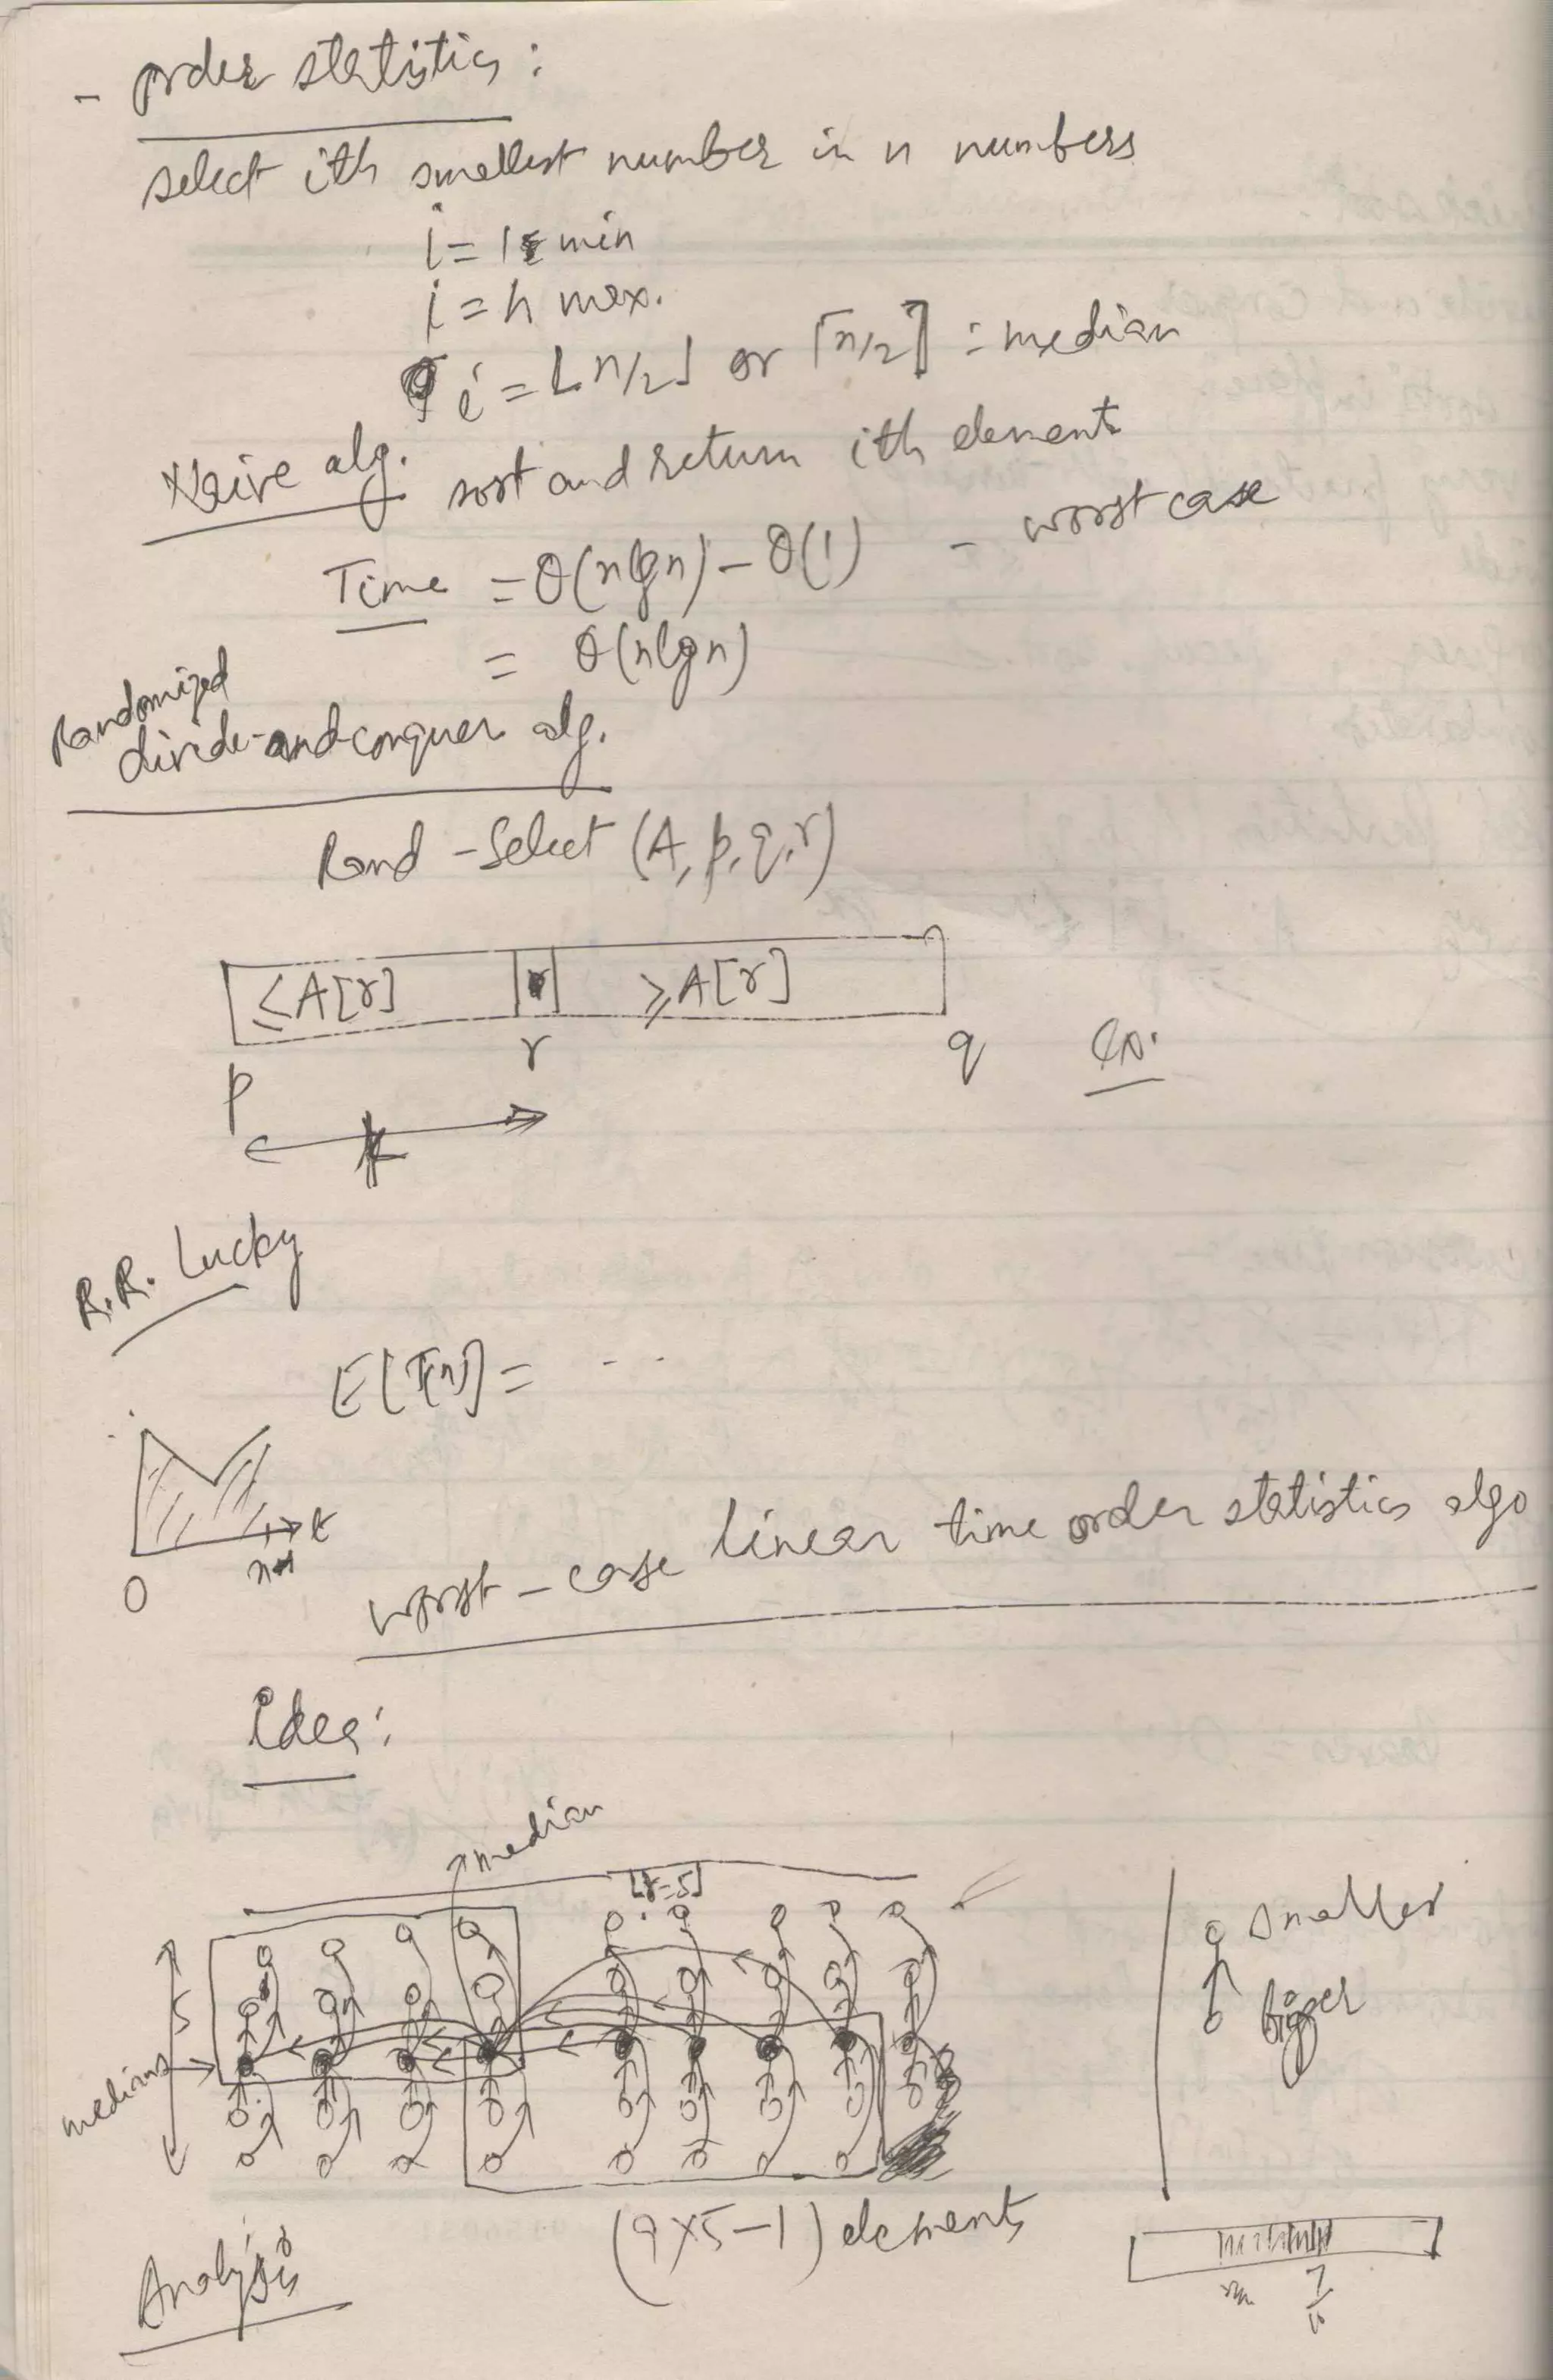 - order statistics :
select ith smallest number in n numbers
i = 1 min
i = n max.
i = ⌊n/2⌋ or ⌈n/2⌉ = median
Naive alg. sort and return ith element
Time = θ(nlgn) - θ(1) - worst case
= θ(nlgn)
Randomized
divide-and-conquer alg.
Rand-Select (A, p, q, r)
≤A[r] r ≥A[r]
p r q
k
R.R. Lucky
E[T(n)] = ...
k
0 n-1
worst-case linear time order statistics algo
Idea:
median
[r=5]
smaller
5
bigger
medians
(9×5-1) elements
Analysis
7/10